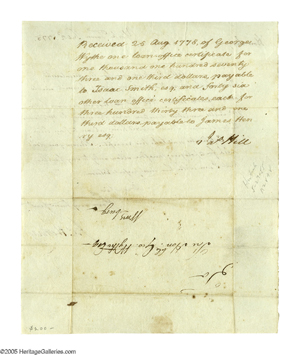 Received 28 Aug 1778, of George
Wythe one loan office certificate for
one thousand one hundred seventy
three and one third dollars, payable
to Isaac Smith, esq and forty six
other loan office certificates, each for
three hundred thirty three and one
third dollars, payable to James Hen
ry esq
Hill
The Hon. Geo Wythe Esq
© 2005 HeritageGalleries.com